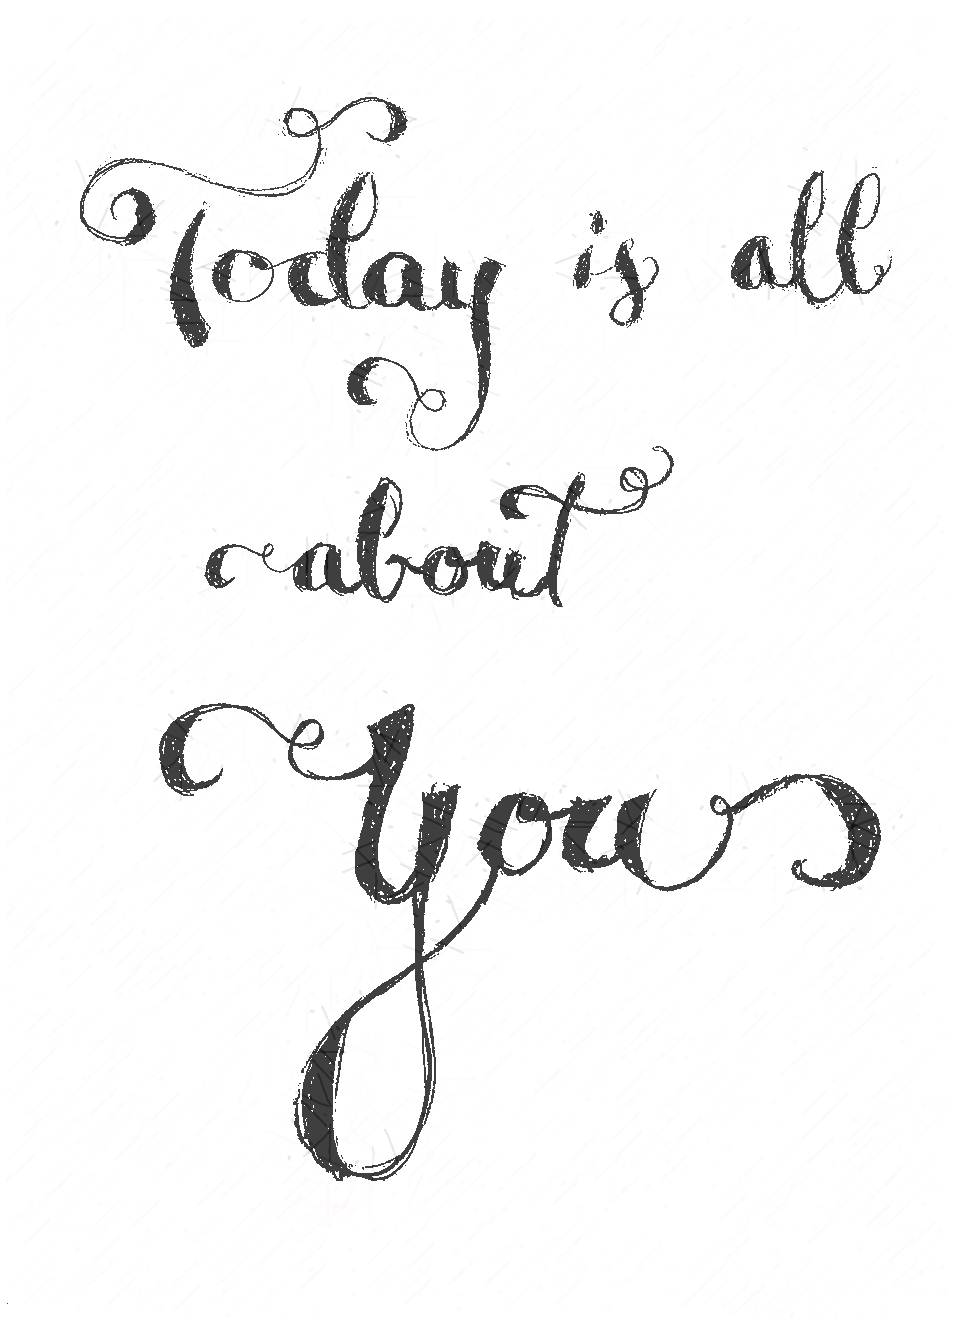 Today is all
about
you